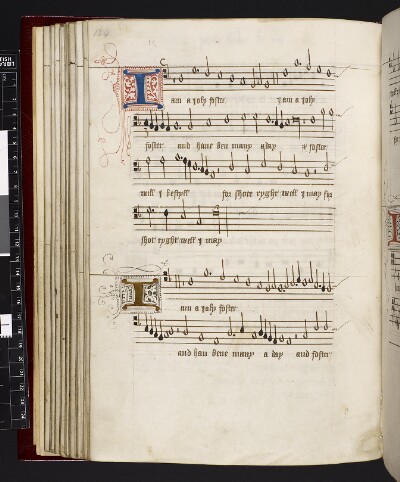 I am a joly foster I am a joly
foster and have ben many a day & foster
will I be styll for shote ryght well I may for
shot ryght well I may
I am a joly foster
and hau bene many a day and foster